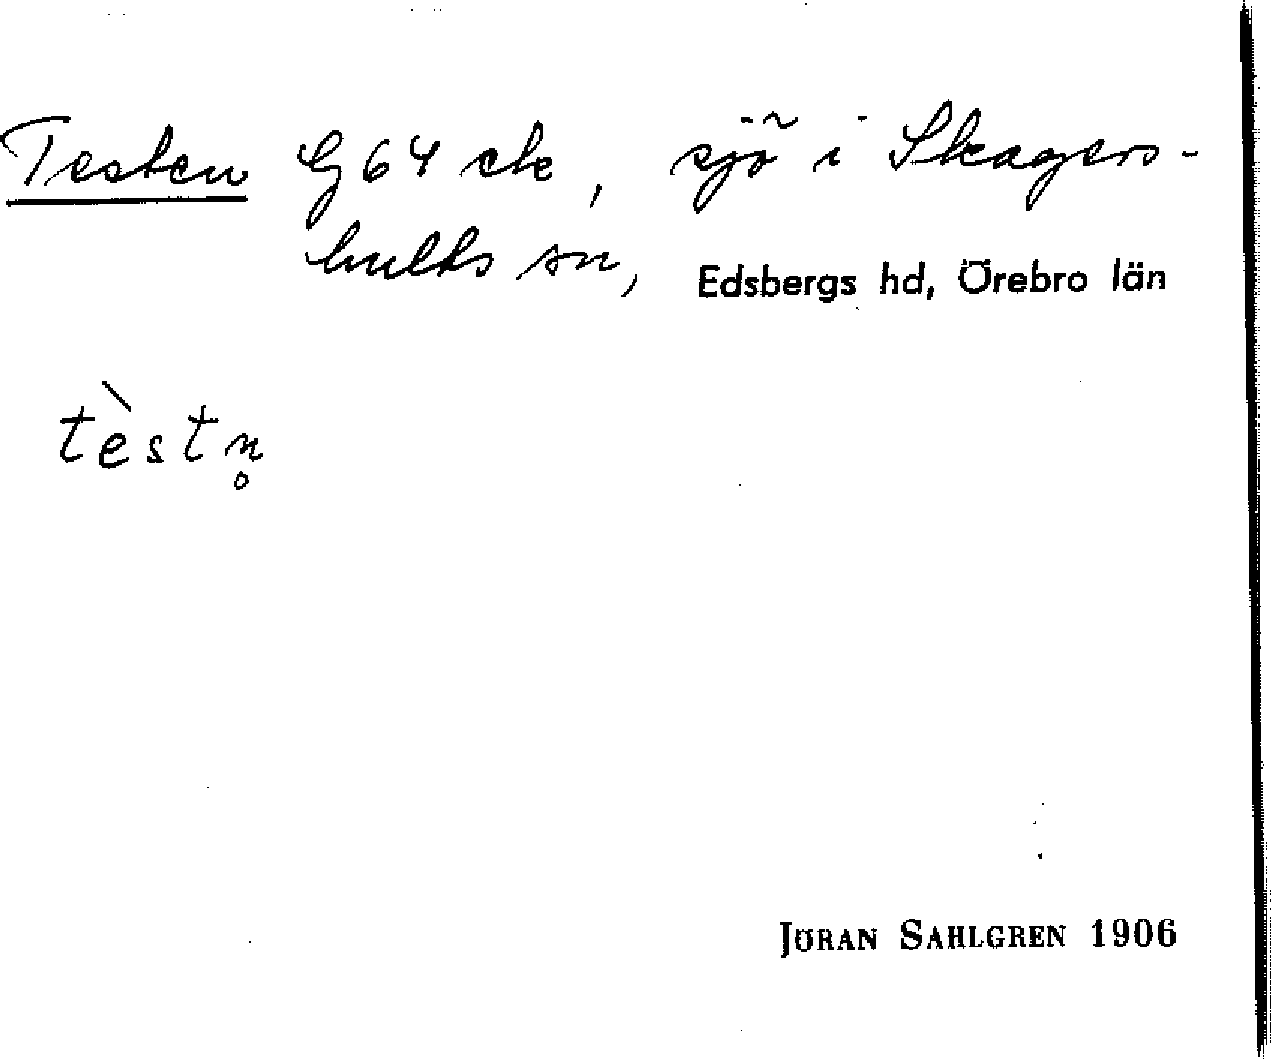 Testen G64 ck, sjö i Skagers-
hults sn, Edsbergs hd, Örebro län
tèstn̥
JÖRAN SAHLGREN 1906